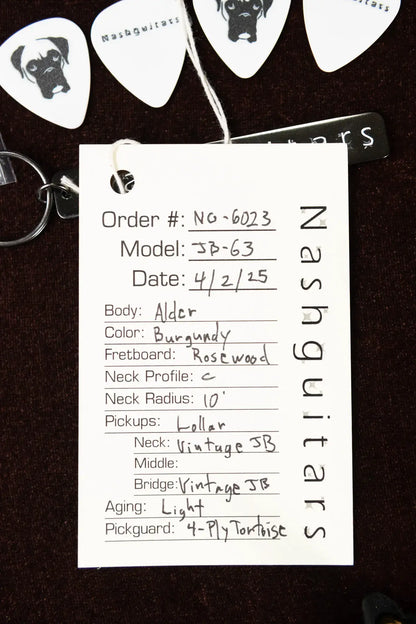 Nashguitars
Nashguitars
tars
Order #: NG-6023
Model: JB-63
Date: 4/2/25
Body: Alder
Color: Burgundy
Fretboard: Rosewood
Neck Profile: C
Neck Radius: 10'
Pickups: Lollar
Neck: Vintage JB
Middle:
Bridge: Vintage JB
Aging: Light
Pickguard: 4-Ply Tortoise
Nashguitars